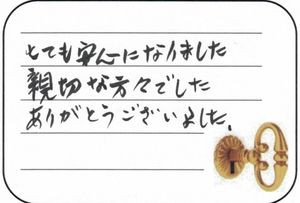 とても安心になりました
親切な方々でした
ありがとうございました。